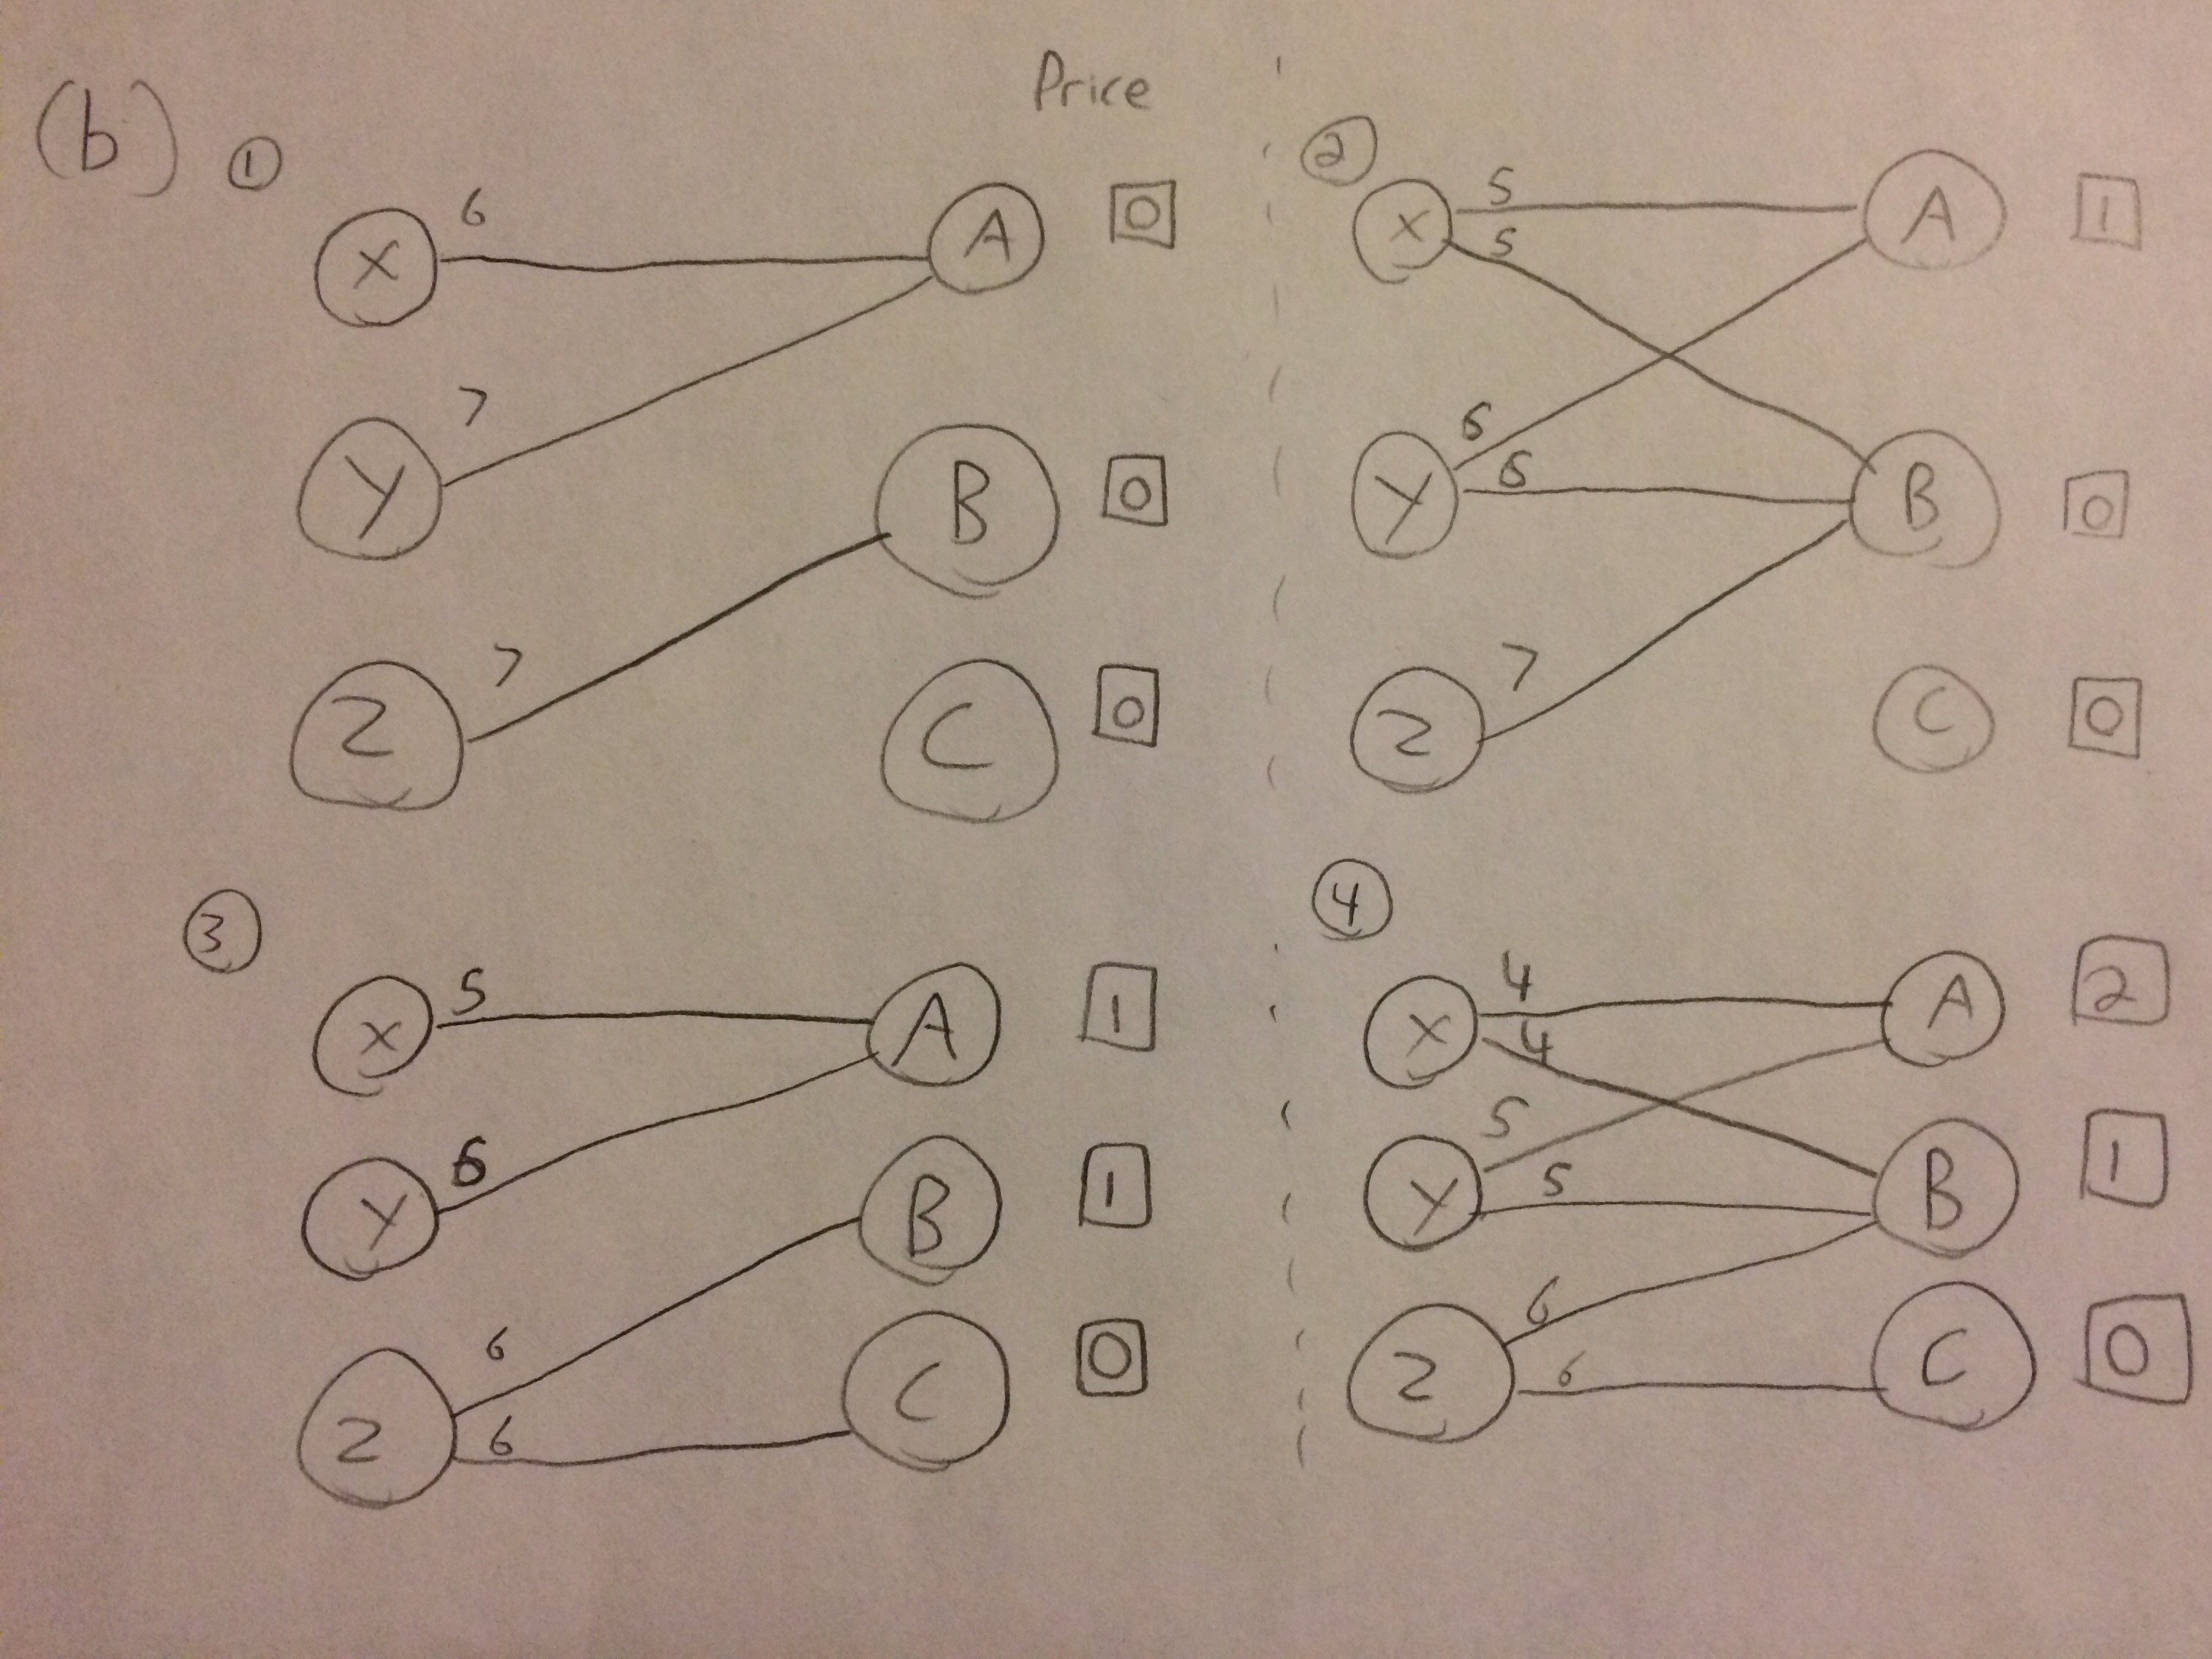 (b)
Price
①
X 6 A 0
Y 7 B 0
Z 7 C 0
②
X 5 5 A 1
Y 6 6 B 0
Z 7 C 0
③
X 5 A 1
Y 6 B 1
Z 6 6 C 0
④
X 4 4 A 2
Y 5 5 B 1
Z 6 6 C 0